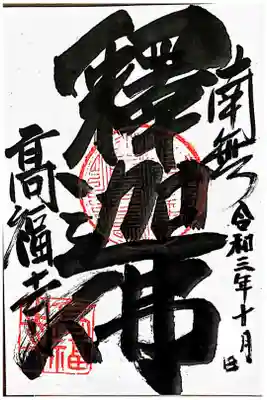 南無
令和三年十月 日
釋迦佛
髙福寺